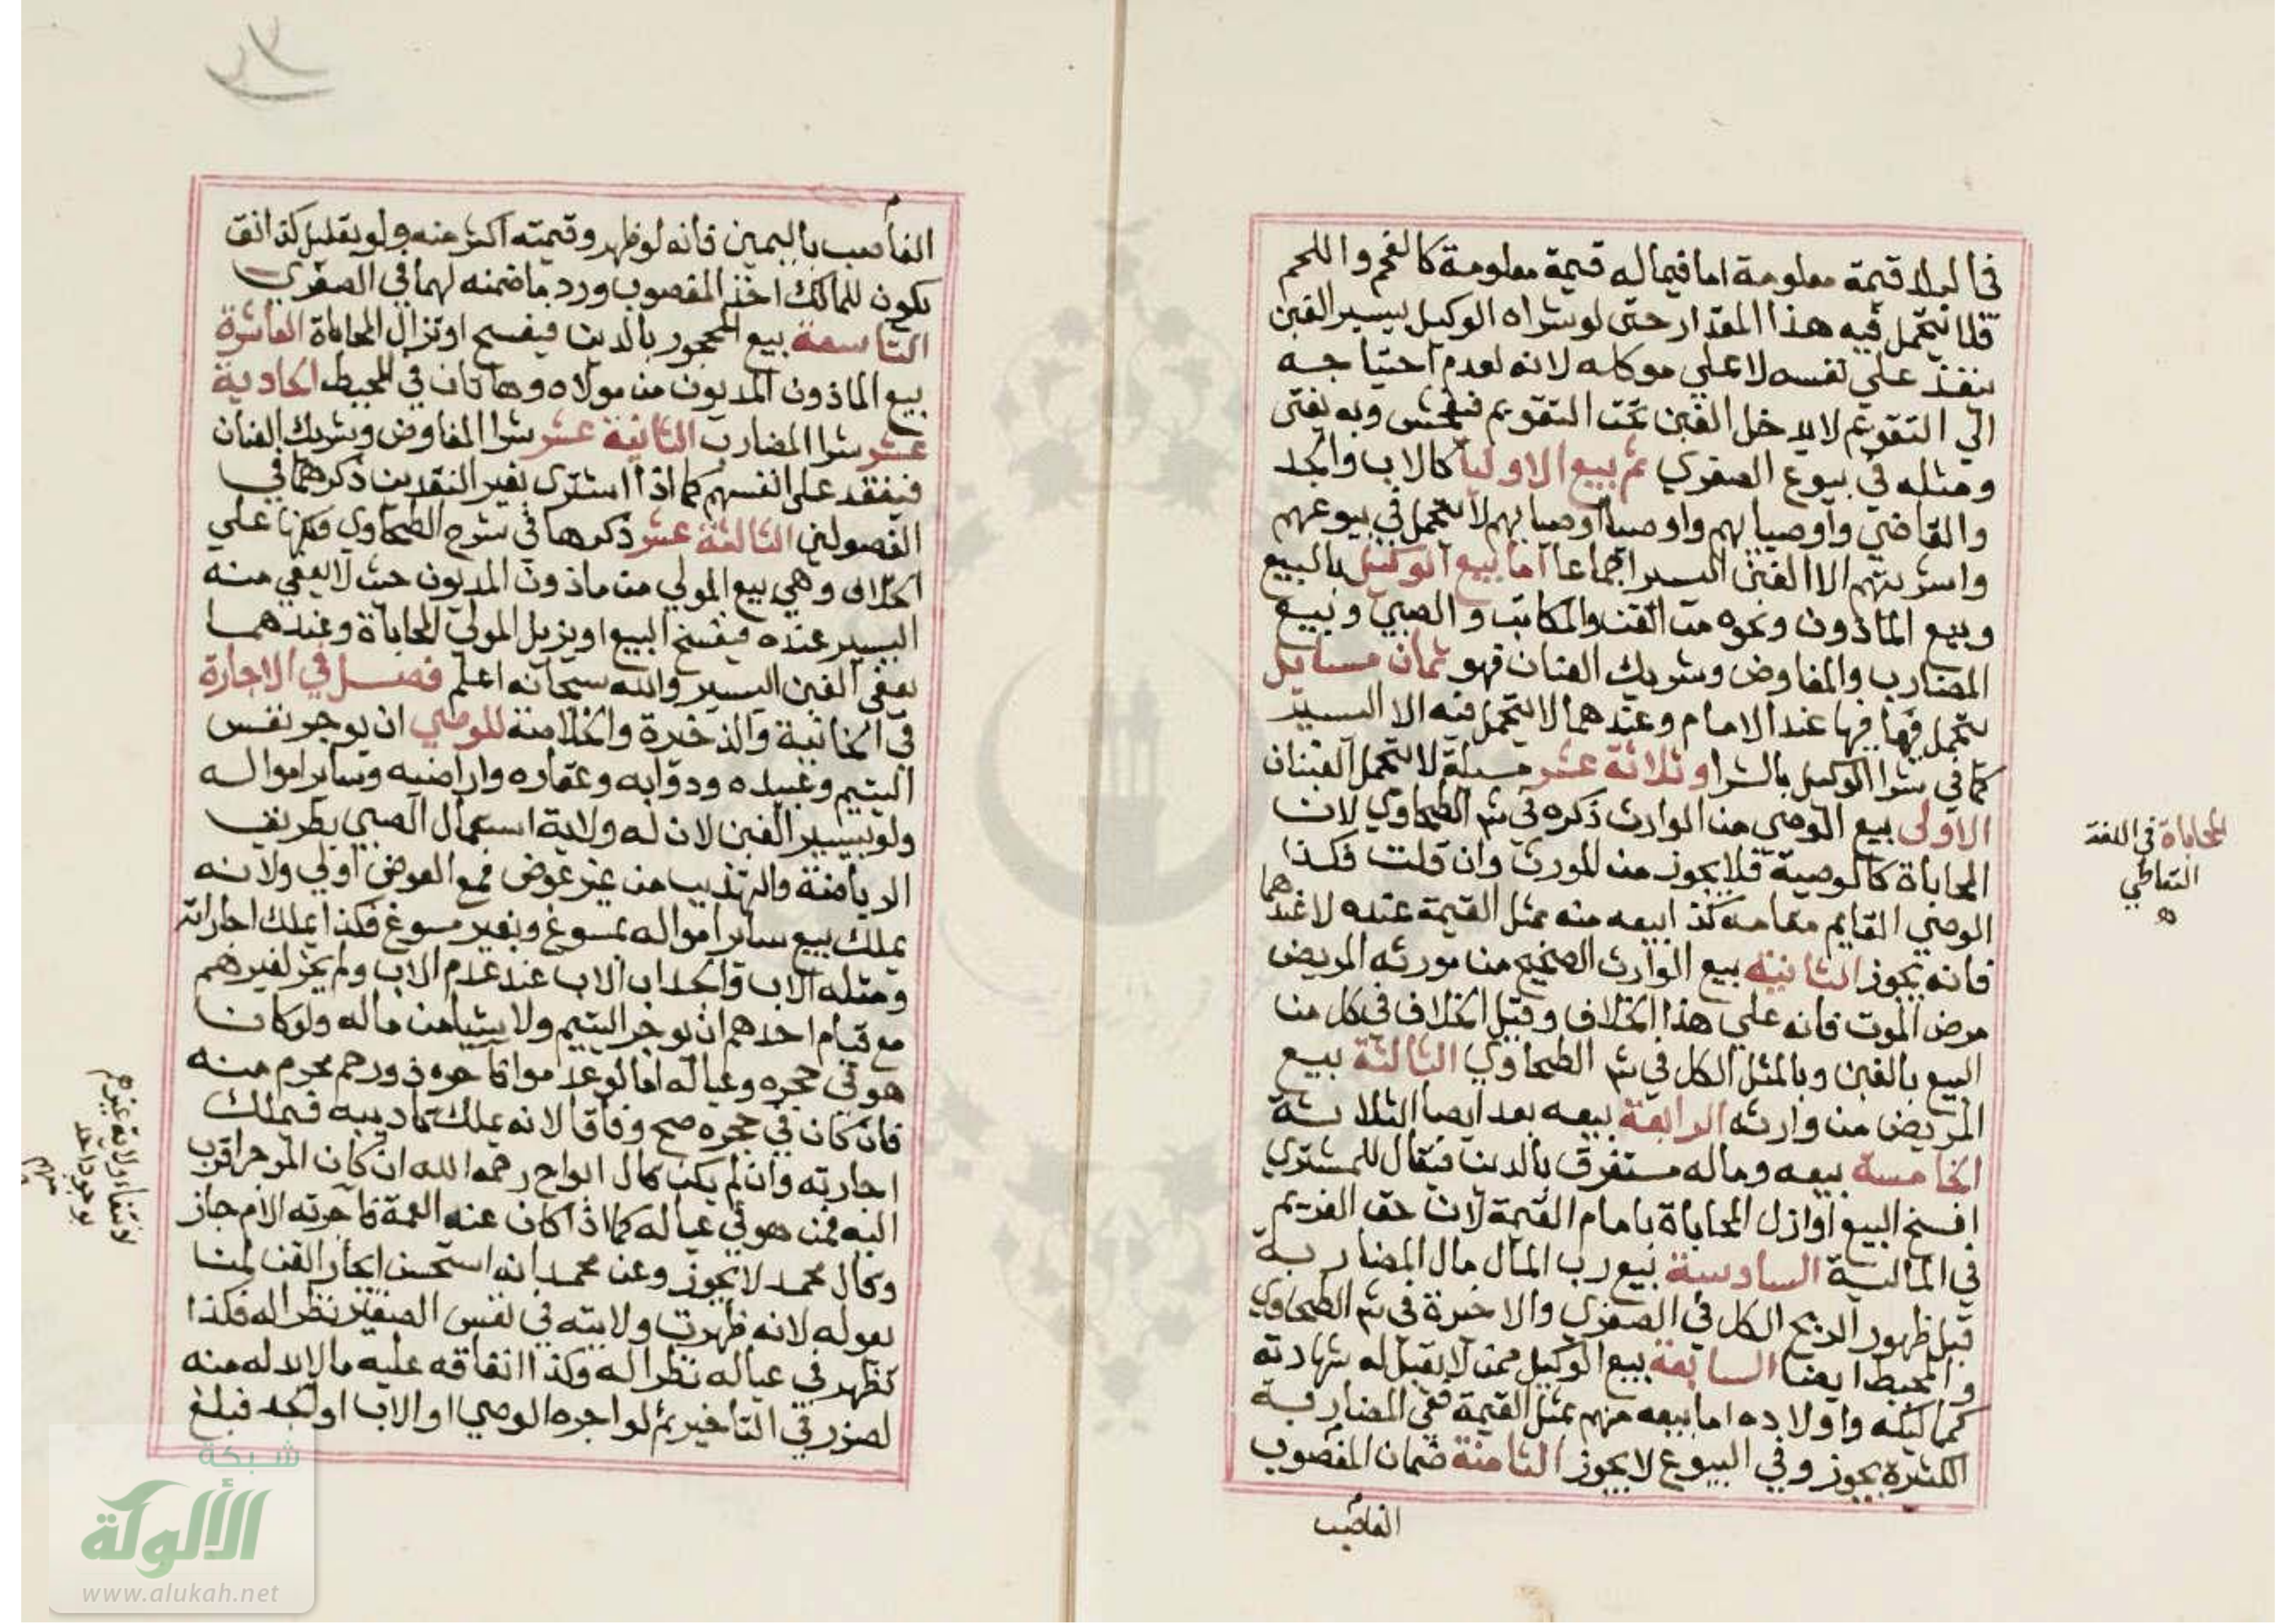 فيما ليس له قيمة معلومة اما فيما له قيمة معلومة كالفحم واللحم
فلا يتحمل فيه هذا المقدار حتى لو شراه الوكيل بيسير الغبن
ينفذ على نفسه لا على موكله لانه لعدم احتياجه
الى التقويم لا يدخل الغبن تحت التقويم فيفحش وبه يفتى
ومثله في بيوع الصغري ثم بيع الاوليا كالاب والجد
والقاضي واوصيايهم واوصيا اوصيايهم لا يتحمل في بيوعهم
واشريتهم الا الغبن اليسير اجماعا اما بيع الوكيل بالبيع
وبيع الماذون ونحوه من القن والمكاتب والصبي وبيع
المضارب والمفاوض وشريك العنان فهو ثمان مسايل
يتحمل فيها عند الامام وعندهما لا يتحمل فيه الا اليسير
كما في شرا الوكيل بالشرا وثلاثة عشر مسيلة لا تتحمل الغبنان
الاولى بيع الوصي من الوارث ذكره في شم الطحاوي لان
المحاباة كالوصية فلا يجوز من المورث وان قلت فكذا
الوصي القايم مقامه كذا بيعه منه بمثل القيمة عنده لا عندهما
فانه يجوز الثانية بيع الوارث الصحيح من مورثه المريض
مرض الموت فانه علي هذا الخلاف وقيل الخلاف في كل من
البيع بالغبن وبالمثل الكل في شم الطحاوي الثالثة بيع
المريض من وارثه الرابعة بيعه بعد ايصا الثلاثة
الخامسة بيعه وماله مستغرق بالدين فيقال للمشتري
افسخ البيع او ازل المحاباة باتمام القيمة لان حق الغريم
في المالية السادسة بيع رب المال مال المضاربة
قبل ظهور الربح الكل في الصغري والاخيرة في شم الطحاوي
والمحيط ايضا السابعة بيع الوكيل ممن لا يقبل له شهادته
كمماليكه واولاده اما بيعه منهم بمثل القيمة ففي المضاربة
الكثيرة يجوز وفي البيوع لا يجوز الثامنة ضمان المغصوب
الغاصب
المحاباة في اللغة
التعاطي
الغاصب باليمين فانه لو ظهر وقيمته اكثر منه ولو بقليل كذانق
يكون للمالك اخذ المغصوب ورد ما ضمنه لهما في الصغري
التاسعة بيع المحجور بالدين فيفسح او تزال المحاباة العاشرة
بيع الماذون المديون من مولاه وهاتان في المحيط الحادية
عشر شرا المضارب الثانية عشر شرا المفاوض وشريك العنان
فينفقد على انفسهم كما اذا اشترى بغير النقدين ذكرهما في
الفصولين الثالثة عشر ذكرها في شرح الطحاوي علي
الخلاف وهي بيع المولي من ماذون المديون حيث لا يعفي منه
اليسير عنده فيفسخ البيع او يزيل المولي المحاباة وعندهما
يعفى الغبن اليسير والله سبحانه اعلم فصل في الاجارة
في الخانية والذخيرة والخلاصة للوصي ان يوجر نفس
اليتيم وعبيده ودوابه وعقاره واراضيه وساير امواله
ولو بيسير الغبن لان له ولاية استعمال الصبي بطريق
الرياضة والتهذيب من غير عوض فمع العوض اولي ولانه
يملك بيع ساير امواله بمسوغ وبغير مسوغ فكذا يملك اجاراته
ومثله الاب والجد اب الاب عند عدم الاب ولم يجز لغيرهم
مع قيام احدهم ان يوجر اليتيم ولا شيا من ماله ولو كان
هو في حجره وعياله اما لو عدموا فآجره ذو رحم محرم منه
فان كان في حجره صح وفاقا لانه يملك تاديبه فيملك
اجارته وان لم يكن قال ابو ح رحمه الله ان كان الموجر اقرب
اليه ممن هو في عياله كما اذا كان عنه العمة فآجرته الام جاز
وقال محمد لا يجوز وعن محمد انه استحسن ايجار القن لمن
يعوله لانه ظهرت ولايته في نفس الصغير نظرا له فكذا
تظهر في عياله نظرا له وكذا انفاقه عليه ما لا بد له منه
لضرر في التاخير ثم لو اجره الوصي او الاب او الجد فبلغ
لانتفاء ولاية غيرهم
بوجود احد
شبكة
الألوكة
www.alukah.net